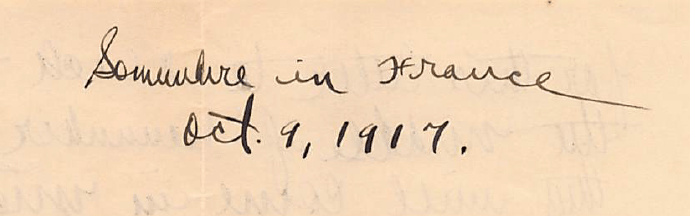 Somewhere in France
Oct. 9, 1917.